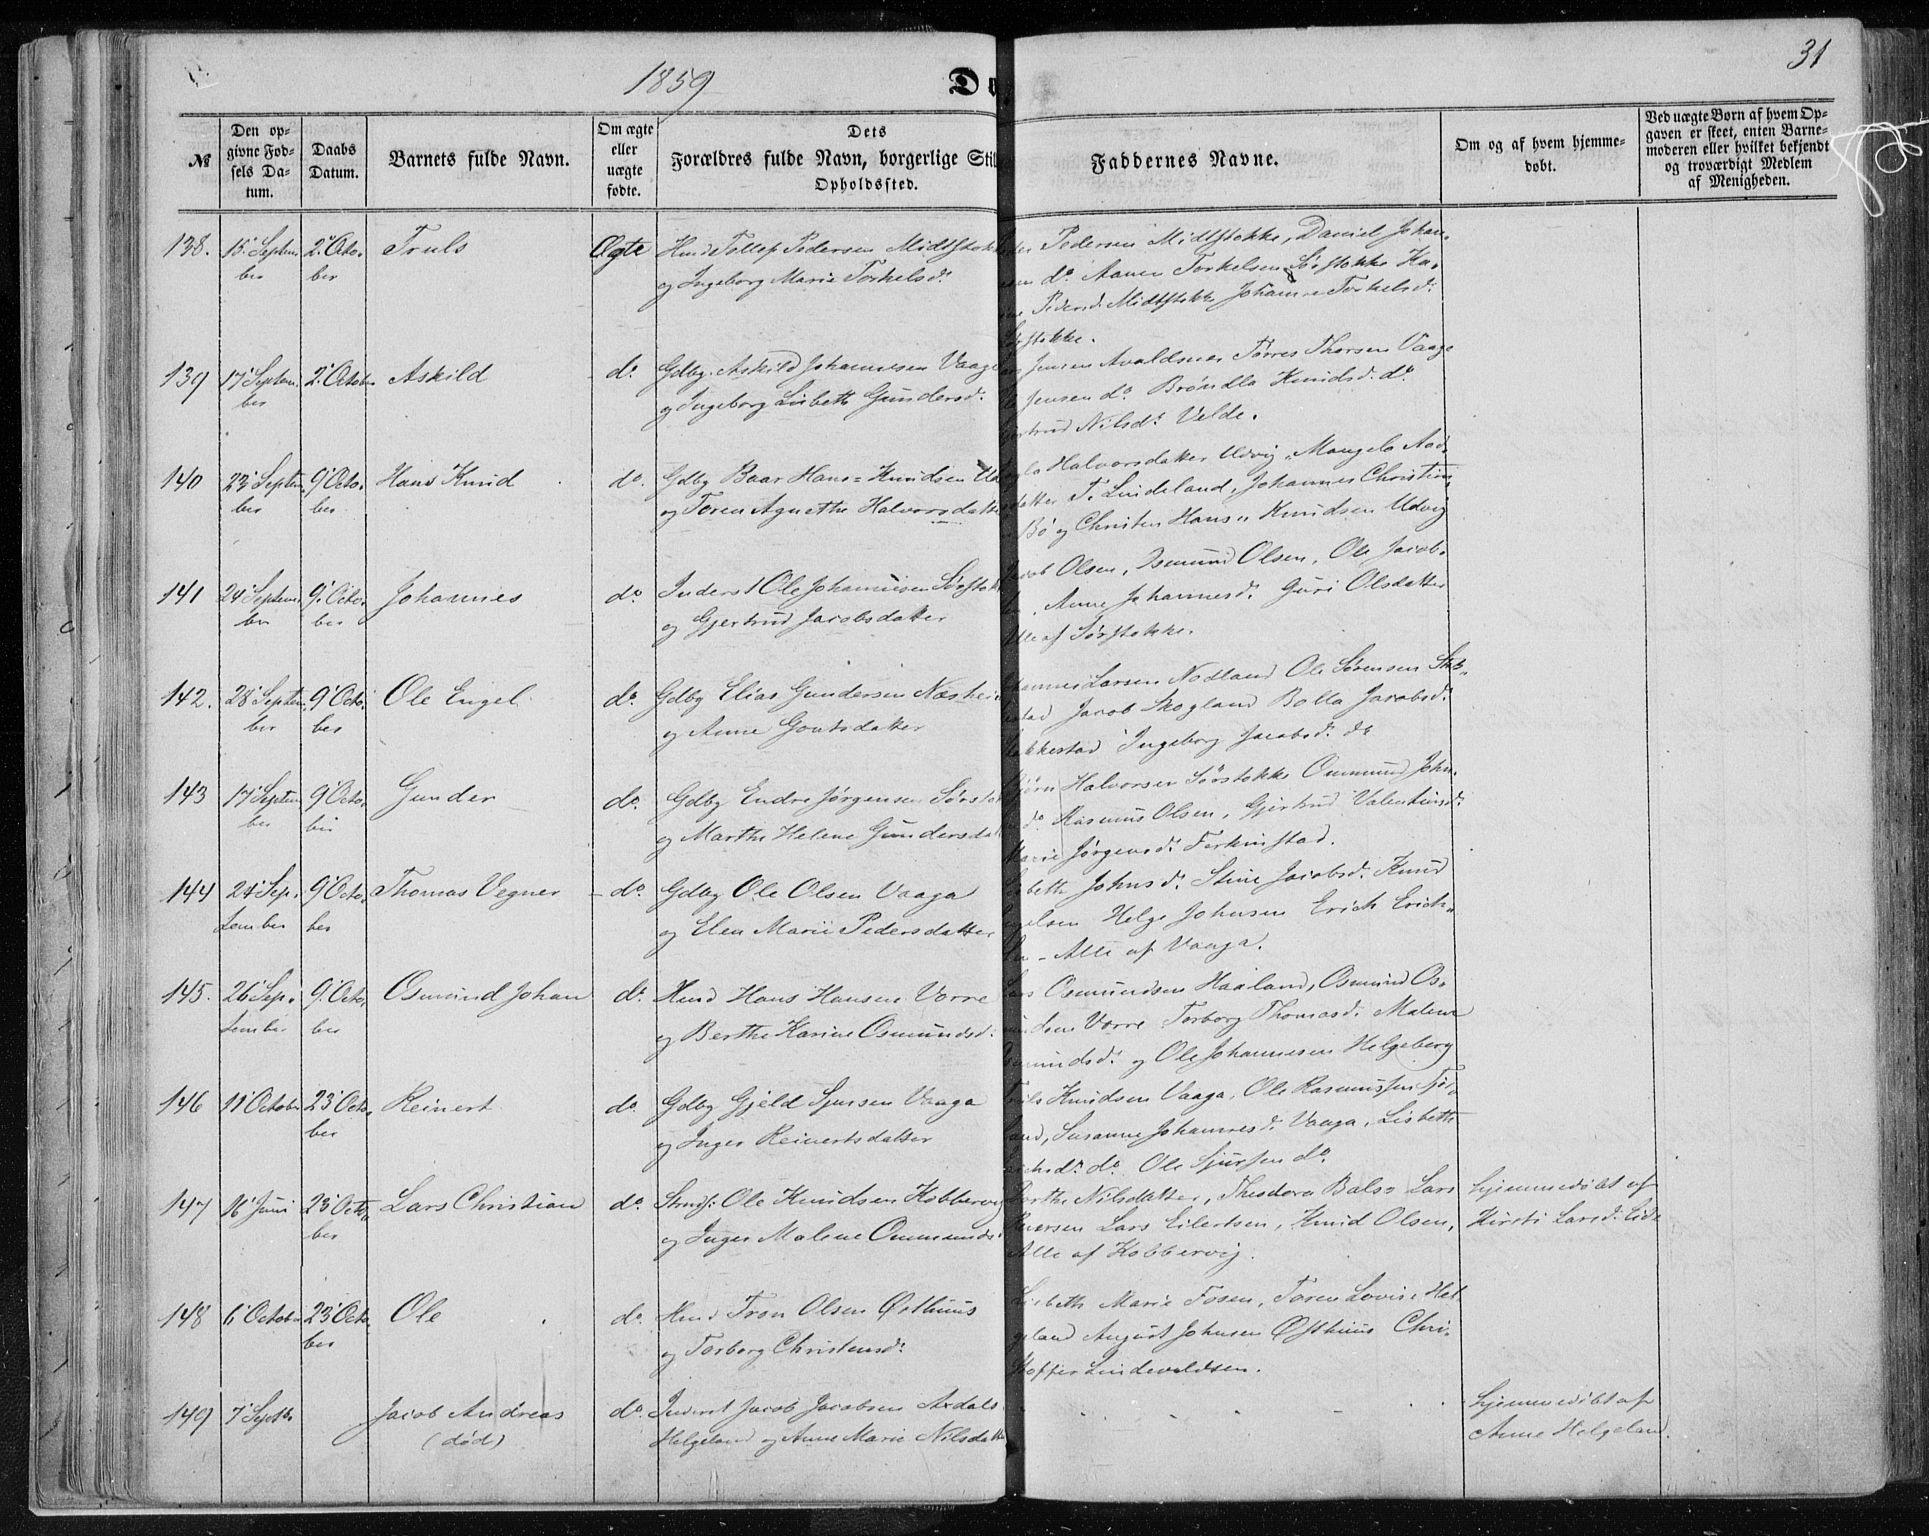 1859
31
№
Den op-
givne Fød-
sels Da-
tum.
Daabs
Datum.
Barnets fulde Navn.
Om ægte
eller
uægte
fødte.
Dets
Forældres fulde Navn, borgerlige Stil
Opholdssted.
Faddernes Navne.
Om og af hvem hjemme-
døbt.
Ved uægte Børn af hvem Op-
gaven er skeet, enten Barne-
moderen eller hvilket bekjendt
og troværdigt Medlem
af Menigheden.
138. 15 Septem 2 Octo- Truls Ægte Hmd Tollef Pedersen Midtstokke
ber ber og Ingeborg Marie Torkelsd.
Pedersen Midtstokke, Daniel Johan-
sen do Aanen Torkelsen Sørstokke Ha-
Pedersd. Midtstokke Johanne Torkelsd.
Sørstokke.
139 17 Septem 2 Octob Askild do. Gdbg. Askild Johannesen Vaage
ber og Ingeborg Lisbeth Gundersd.
Jensen Avaldsnes Tørres Thorsen Vaage
Jensen do Brøndla Knudsd. do
Nilsd. Velde.
140 22 Septem 9 Octo- Hans Knud do. Gdbg Baar Hans-Knudsen Ud
ber ber og Toren Agnethe Halvorsdatter
Halvorsdatter Udvig, Mangela Aad-
datter T. Lindeland, Johannes Christen
Bø og Christen Hans- Knudsen Udvig
141 24 Septem 9 Octo- Johannes do. Inderst Ole Johannesen Sørstok
ber ber og Gjertrud Jacobsdatter
Jacob Olsen, Osmund Olsen, Ole Jacob-
Anne Johannesd. Guri Olsdatter
Alle af Sørstokke.
142. 28 Septem 9 Octo- Ole Engel do. Gdbg Elias Gundersen Næshei
ber ber og Anne Goutsdatter
Johannes Larsen Nodland Ole Sørensen Stk-
estad Jacob Skogland Bolla Jacobsd.
Ingeborg Jacobsd. do
143 17 Septem 9 Octo- Gunder do. Gdbg Endre Jørgensen Sørstok
ber ber og Marthe Helene Gundersdat
Halvorsen Sørstokke Ommund John-
do. Rasmus Olsen, Gjertrud Valentinsd.
Marie Jørgensd. Ferkinstad.
144 24 Sep- 9 Octo- Thomas Vegner do. Gdbg Ole Olsen Vaaga
tember ber og Elen Marie Pedersdatter
Lisbeth Johnsd. Stine Jacobsd. Knud
Helge Johnsen Erich Erich-
Alle af Vaaga.
145. 26 Sep- 9 Octo- Osmund Johan do. Hmd Hans Hansen Vorre
tember ber og Berthe Karine Osmundsd.
Lars Osmundsen Haaland, Osmund Os-
mundsen Vorre Torborg Thomasd. Malene
Osmundsd. og Ole Johannesen Helgeberg
146 11 October 23 Octo- Reinert do. Gdbg Gjeld Sjursen Vaaga
ber og Inger Reinertsdatter
Truls Knudsen Vaaga, Ole Rasmussen Tjø-
land, Susanne Johannesd. Vaaga, Lisbeth
do. Ole Sjursen do.
147 16 Juni 23 Octo- Lars Christian do. Strmdf. Ole Knudsen Kobbervig
ber og Inger Malene Ommunds
Berthe Nilsdatter, Theodora Balss Lars
Iversen Lars Eilertsen, Knud Olsen,
Alle af Kobbervig.
hjemmedøbt af
Kirsti Larsd. Eide
148 6 Octob 23 Octo- Ole do. Hmd Tron Olsen Østhuus
ber og Torborg Christensd.
Lisbeth Marie Fosen, Toren Lovise Hel
geland August Johnsen Østhuus Chri-
stoffer Lindevaldsen.
149 7 Septb Jacob Andreas do. Inderst Jacob Jacobsen Axdals
(død) Helgeland og Anne Marie Nilsdat
hjemmedøbt af
Anne Helgeland.